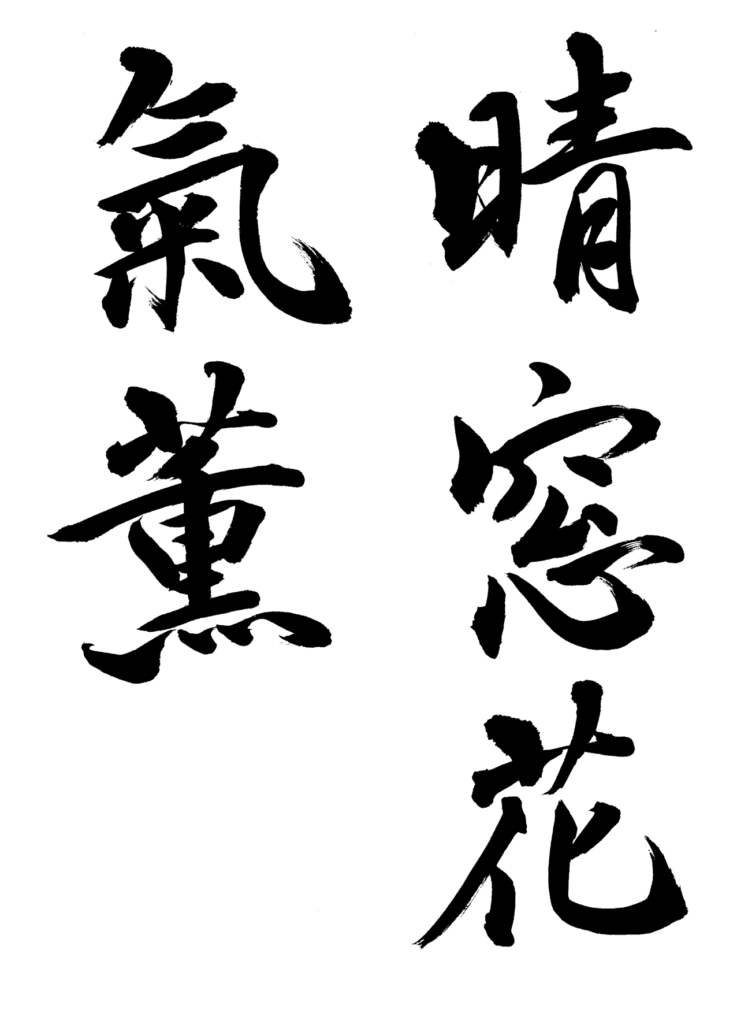 晴窓花
氣薫